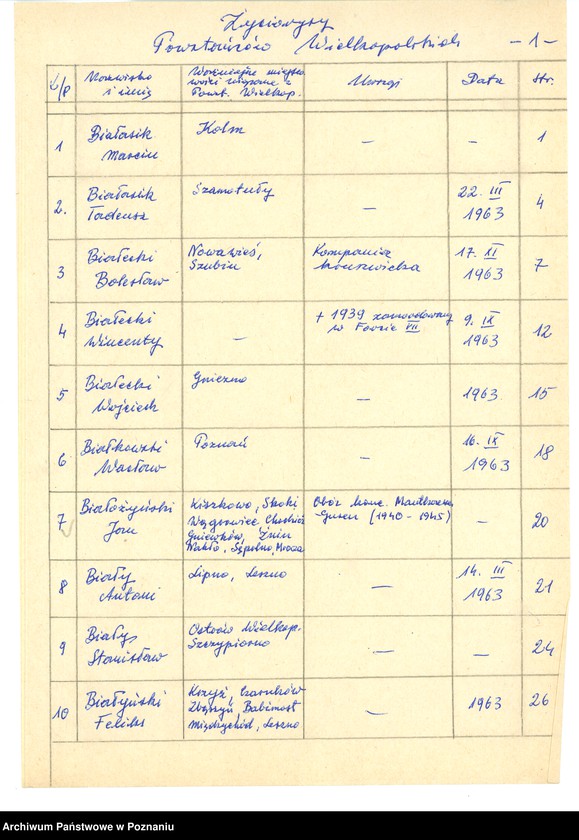 Życiorysy
Powstańców Wielkopolskich -1-
L/p Nazwisko i imię Ważniejsze miejscowości związane z Powst. Wielkop. Uwagi Data Str.
1 Białasik Marcin Kolm — — 1
2. Białasik Tadeusz Szamotuły — 22. III 1963 4
3 Białecki Bolesław Nowawieś, Szubin Kompania 17. XI 1963 7
4 Białecki Wincenty — + 1939 zamordowany w Forcie VII 9. IX 1963 12
5 Białecki Wojciech Gniezno — 1963. 15
6 Białkowski Wacław Poznań — 16. IX 1963 18
7 Białożyński Jan Kiszkowo, Skoki Wągrowiec Chodzież Gniewków, Żnin Nakło, Sępolno, Mrocza Obóz konc. Mauthausen Gusen (1940 - 1945) — 20
8 Biały Antoni Lipno, Leszno — 14. III 1963 21
9 Biały, Stanisław Ostrów Wielkop. Szczypiorno — — 24
10 Białyński Feliks Krzyż, Czarnków Zbąszyń, Babimost Międzychód, Leszno — 1963 26
Archiwum Państwowe w Poznaniu